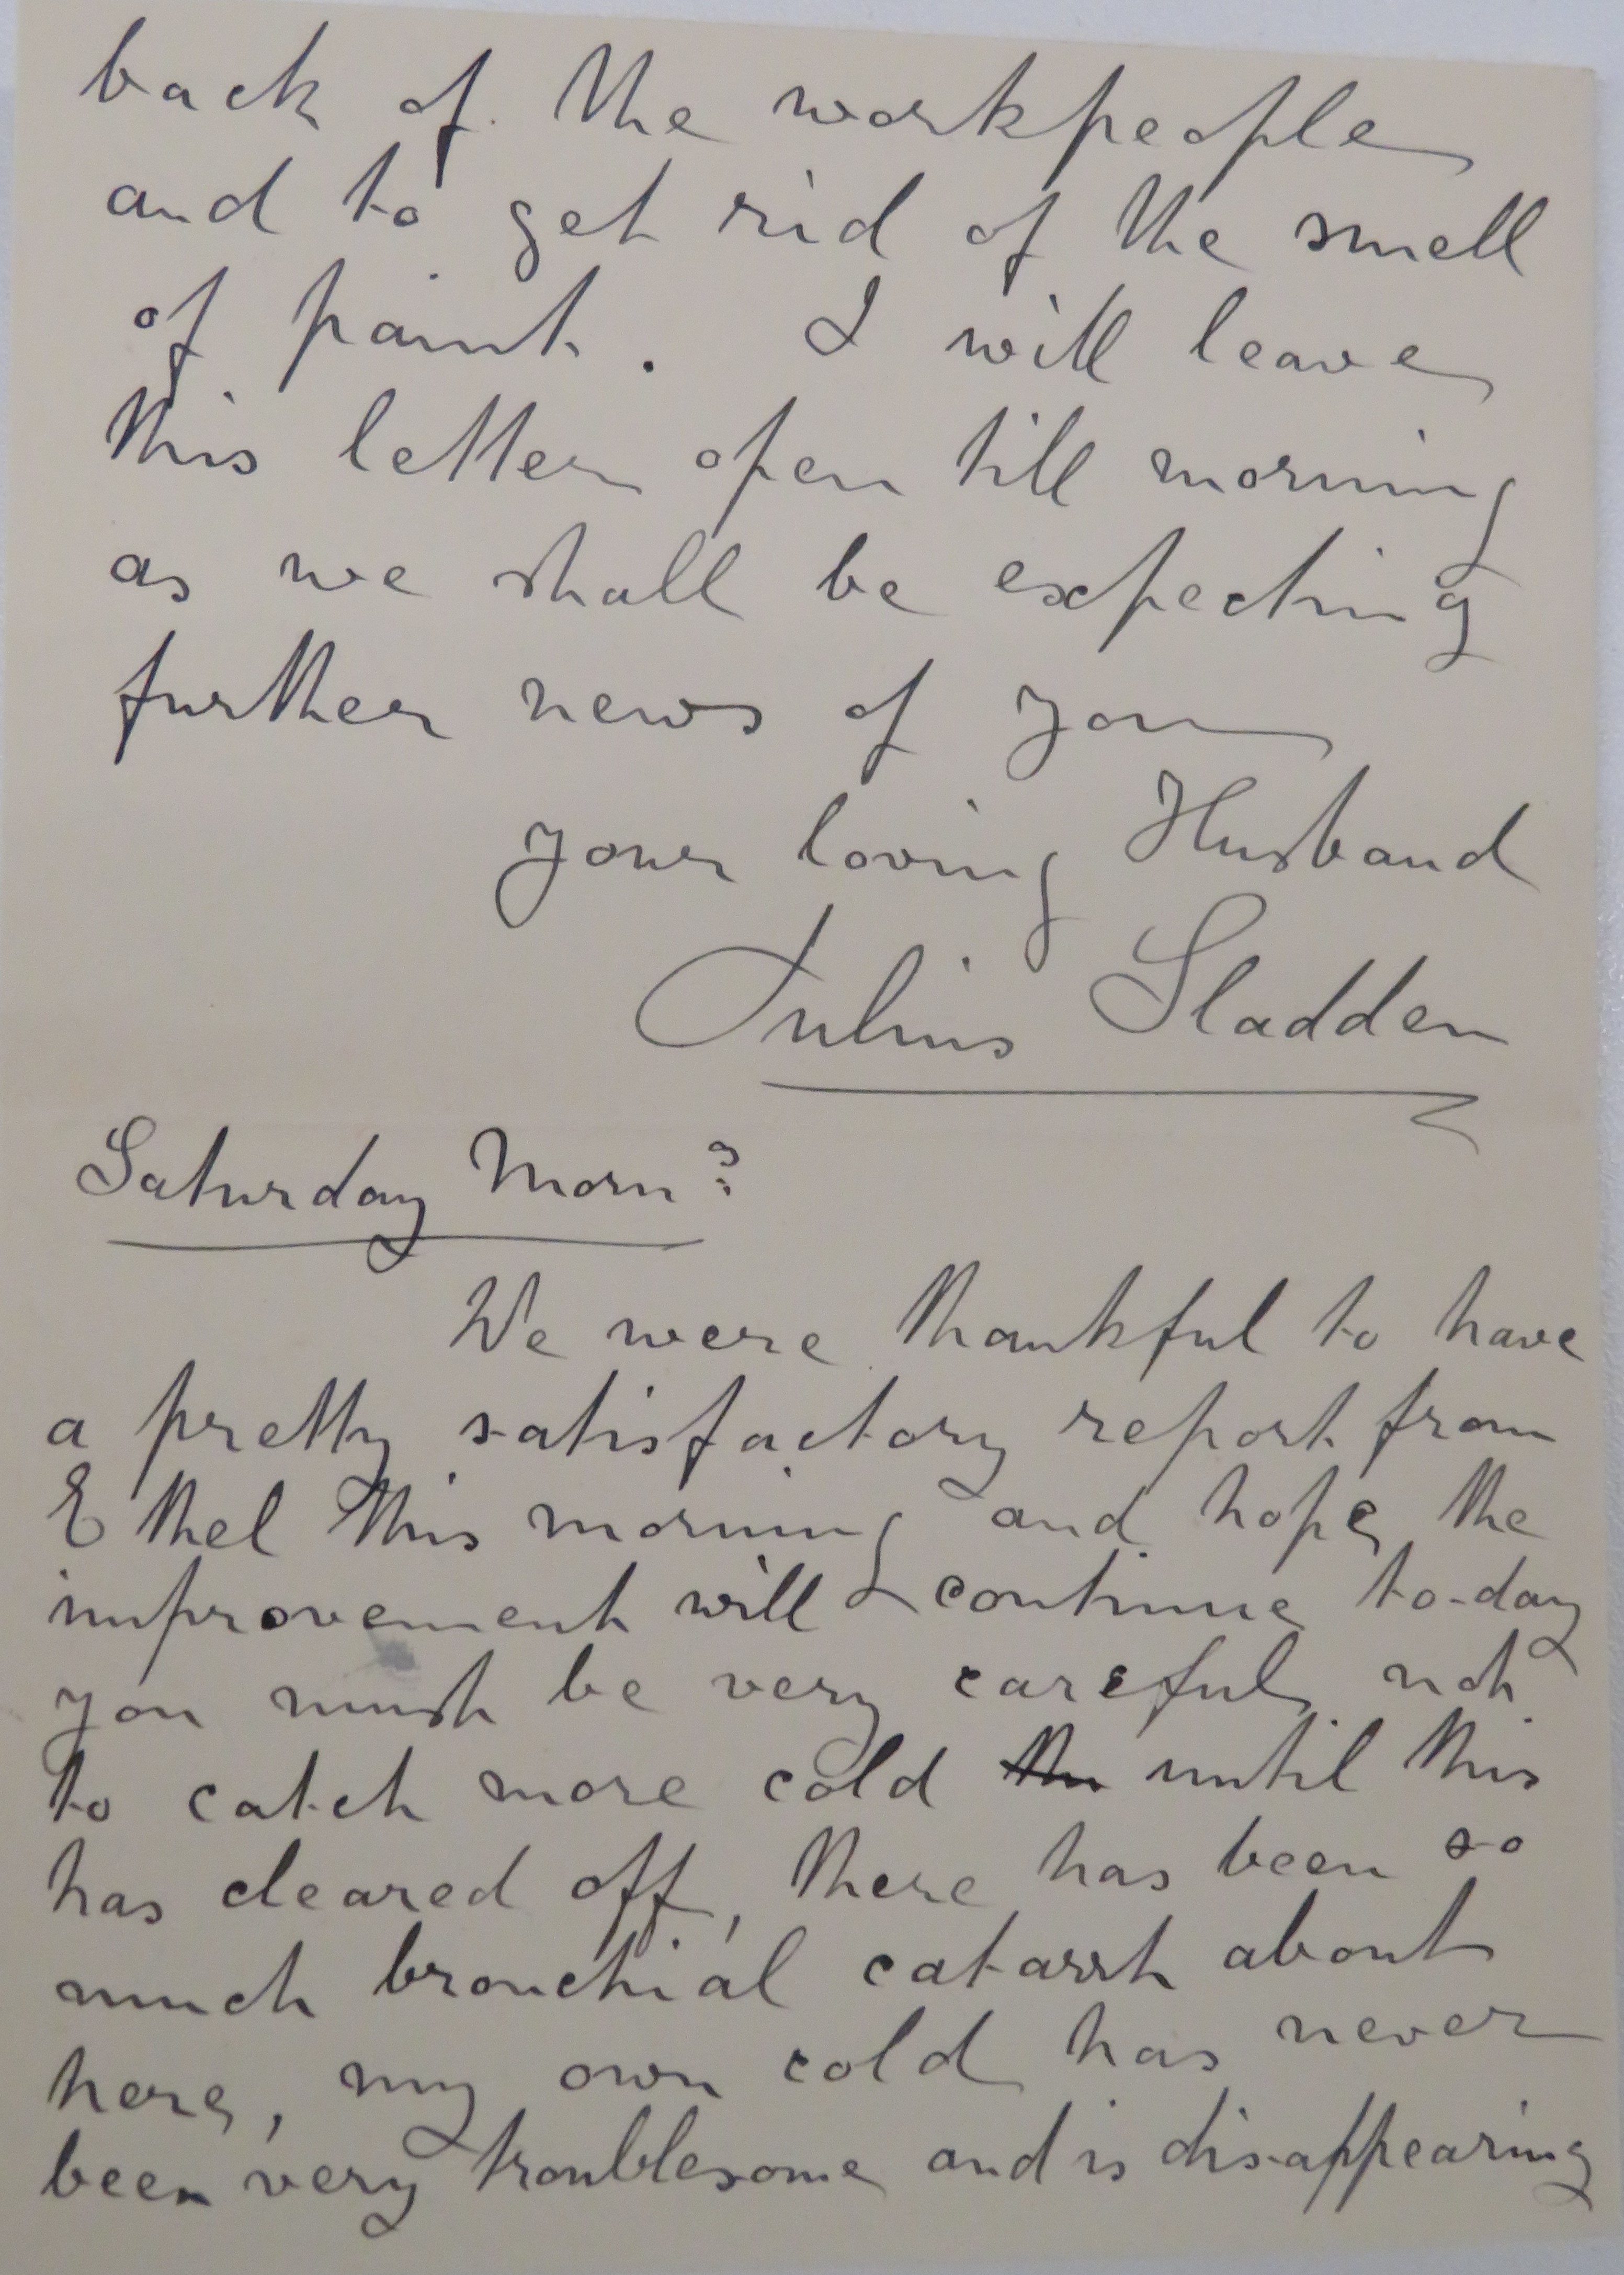 back of the workpeople
and to get rid of the smell
of paint. I will leave
this letter open till morning
as we shall be expecting
further news of you
your loving Husband
Julius Sladden
Saturday Morng
We were thankful to have
a pretty satisfactory report from
Ethel this morning and hope the
improvement will continue to-day
you must be very careful not
to catch more cold the until this
has cleared off, there has been so
much bronchial catarrh about
here, my own cold has never
been very troublesome and is disappearing